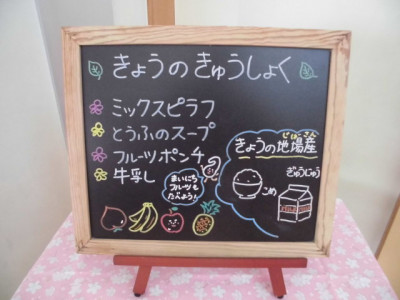 きょうのきゅうしょく
ミックスピラフ
とうふのスープ
フルーツポンチ
牛乳し
まいにち
フルーツも
たべよう!
じばさん
きょうの地場産
こめ
ぎゅうにゅう